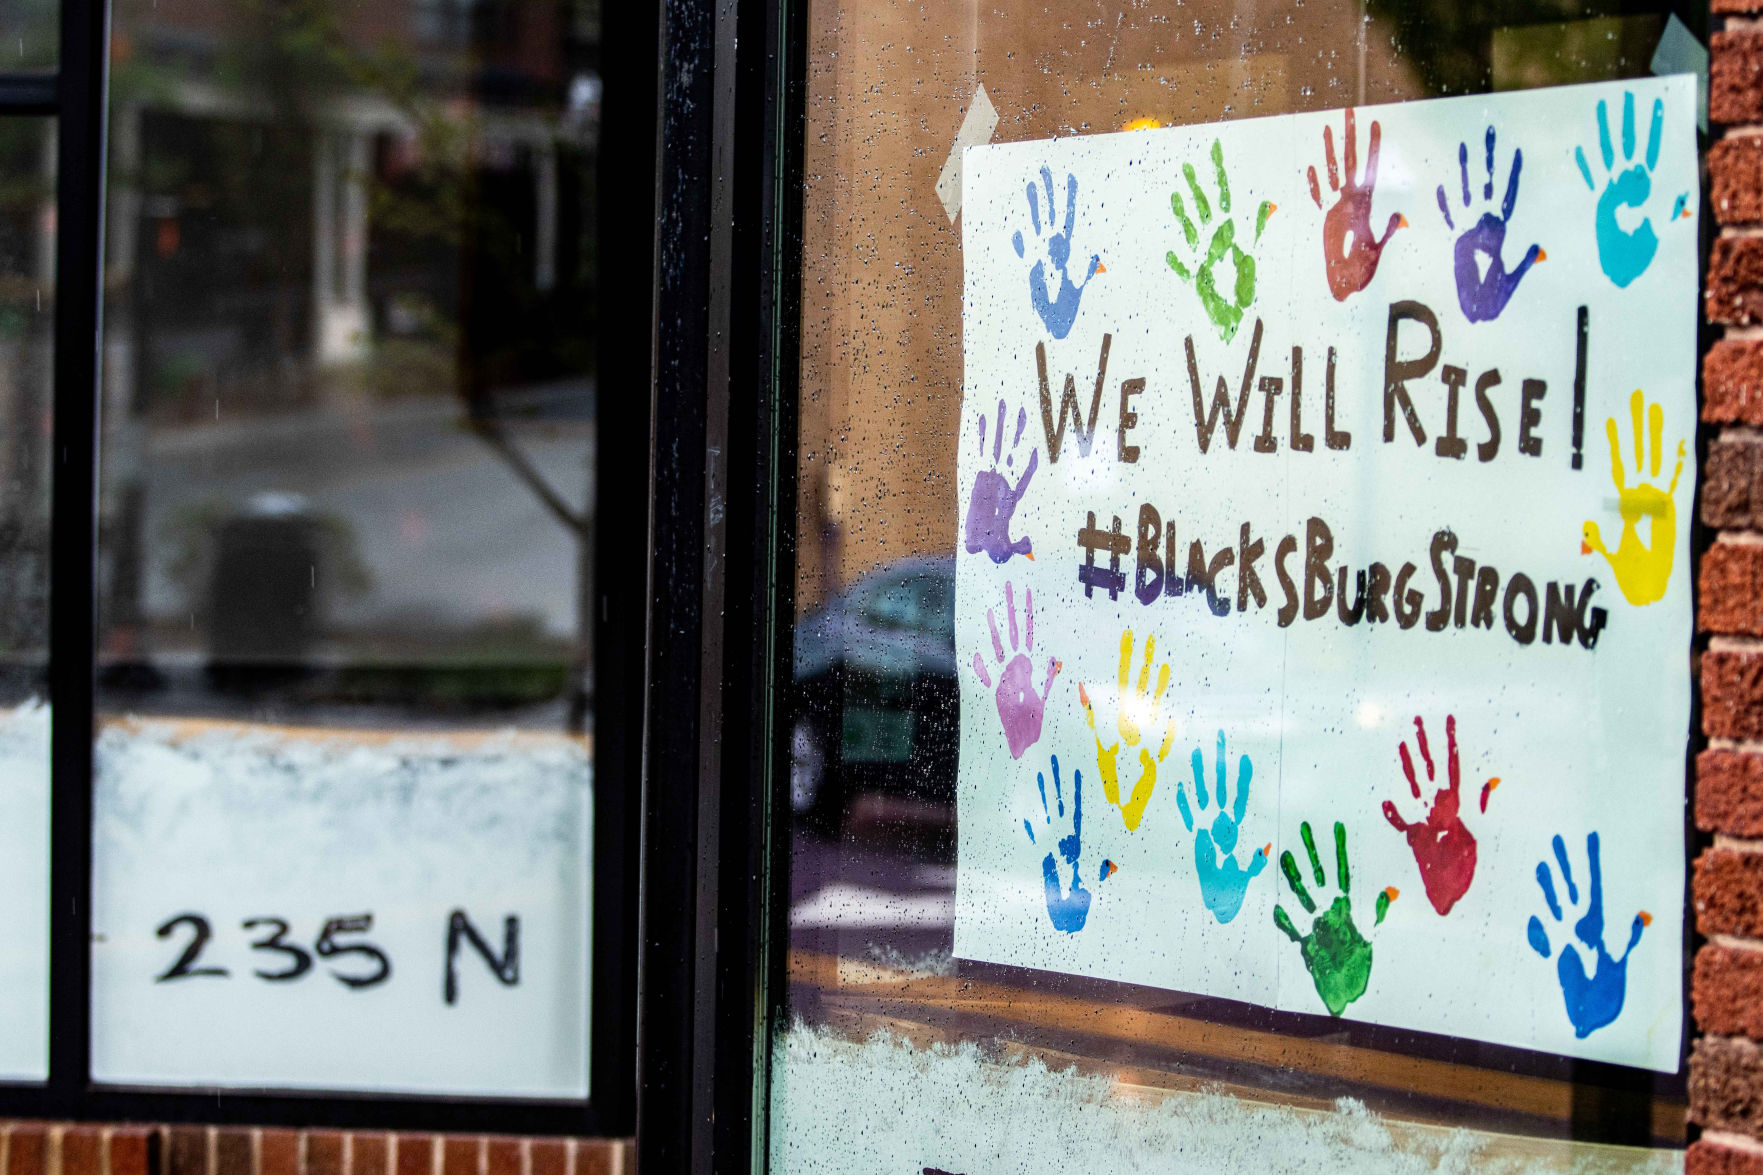 235 N
We Will Rise!
#BlacksBurgStrong